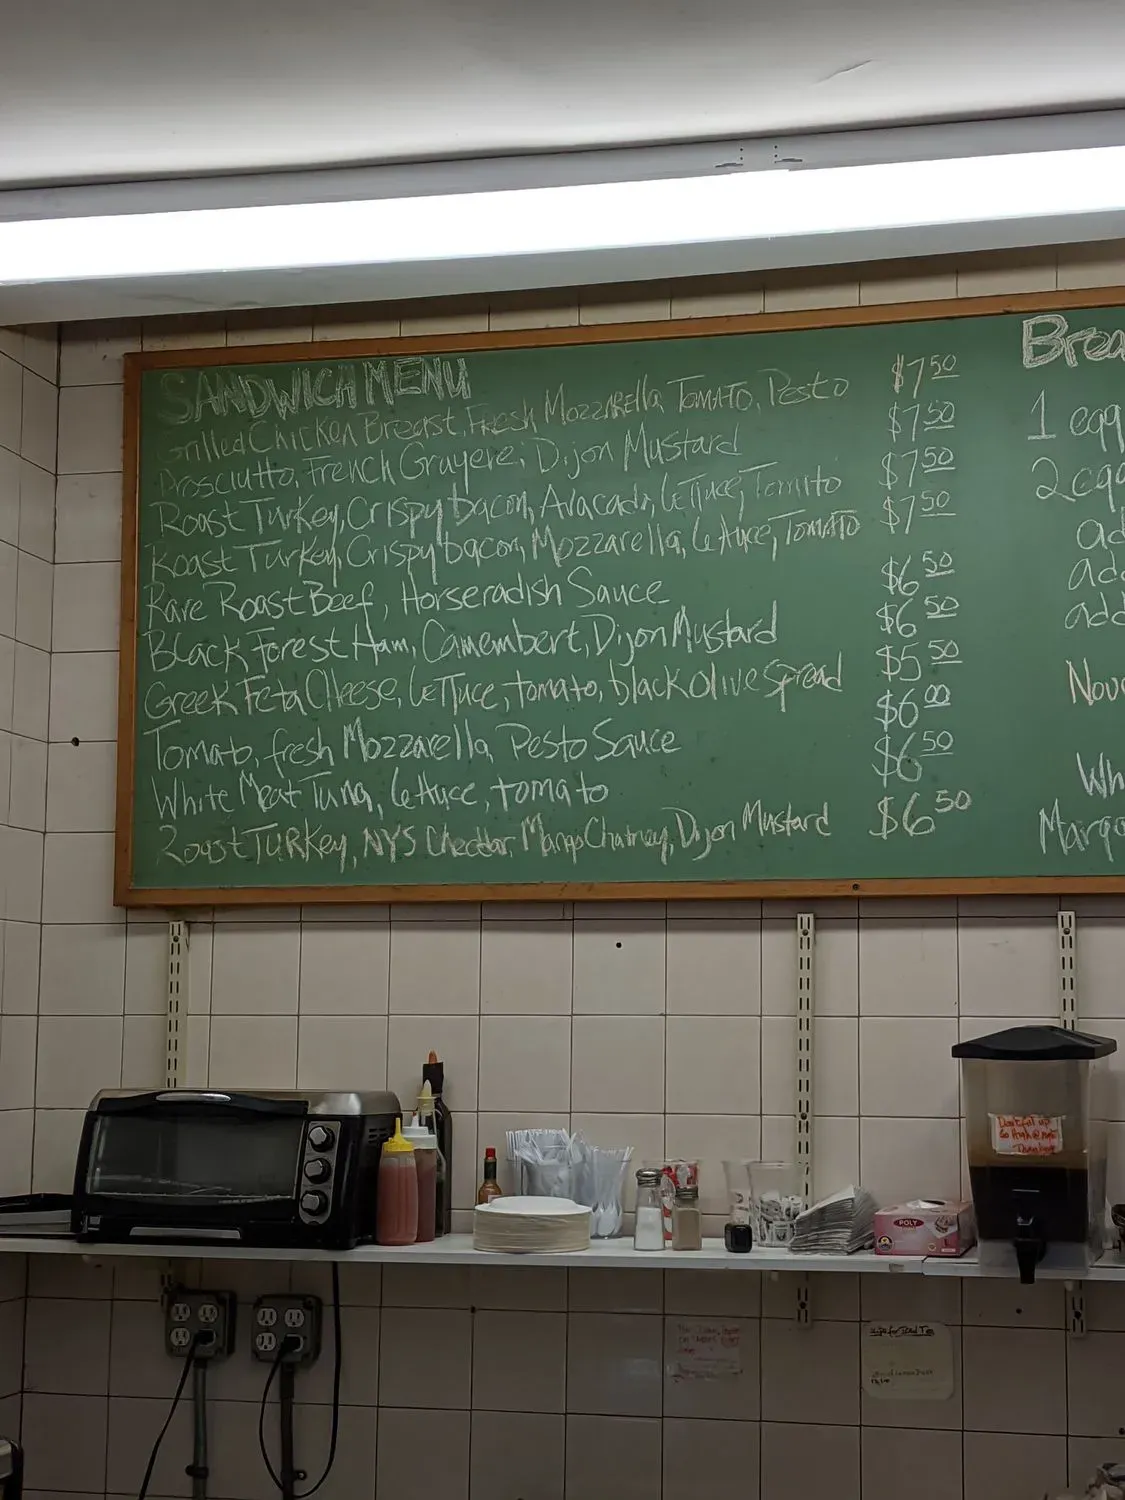 SANDWICH MENU
Grilled Chicken Breast, Fresh Mozzarella, Tomato, Pesto $7.50
Prosciutto, French Gruyere, Dijon Mustard $7.50
Roast Turkey, Crispy bacon, Avacado, Lettuce, Tomato $7.50
Roast Turkey, Crispy bacon, Mozzarella, Lettuce, Tomato $7.50
Rare Roast Beef, Horseradish Sauce $6.50
Black Forest Ham, Camembert, Dijon Mustard $6.50
Greek Feta Cheese, Lettuce, tomato, black olive spread $5.50
Tomato, fresh Mozzarella, Pesto Sauce $6.00
White Meat Tuna, Lettuce, tomato $6.50
Roast Turkey, NYS Cheddar, Mango Chutney, Dijon Mustard $6.50
Brea
1 egg
2 egg
ad
add
add
Nov
Wh
Margo
POLY